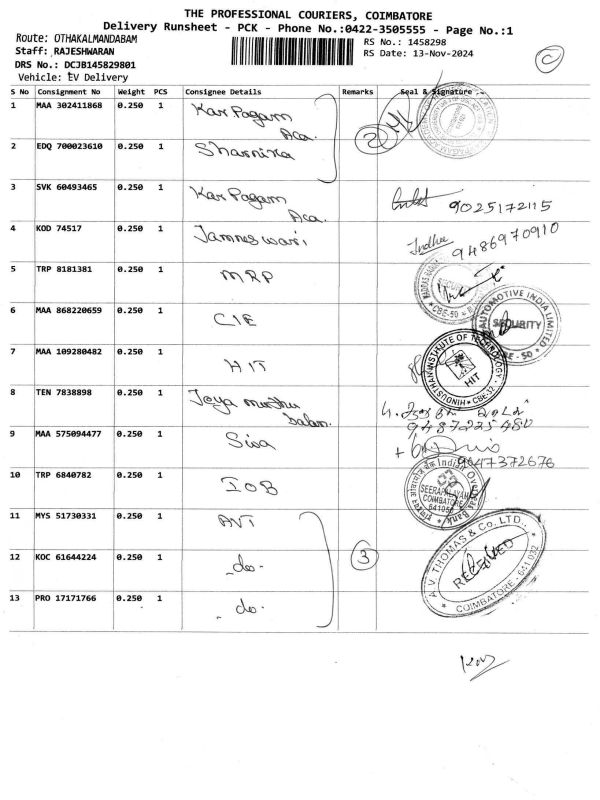 THE PROFESSIONAL COURIERS, COIMBATORE
Delivery Runsheet - PCK - Phone No.:0422-3505555 - Page No.:1
Route: OTHAKALMANDABAM
RS No.: 1458298
Staff: RAJESHWARAN
RS Date: 13-Nov-2024
DRS No.: DCJB145829801
Vehicle: EV Delivery
S No Consignment No Weight PCS Consignee Details Remarks Seal & Signature
1 MAA 302411868 0.250 1 Karpagam Aca.
2 EDQ 700023610 0.250 1 Sharnika
2
3 SVK 60493465 0.250 1 Karpagam Aca. 9025172115
4 KOD 74517 0.250 1 Jamneswari Indhu 9486970910
5 TRP 8181381 0.250 1 MRP
6 MAA 868220659 0.250 1 CIE
AUTOMOTIVE INDIA LIMITED
SECURITY
CBE - 50
7 MAA 109280482 0.250 1 HIT
HINDUSTHAN INSTITUTE OF TECHNOLOGY
HIT
CBE-32
8 TEN 7838898 0.250 1 Joya
9487235480
9 MAA 575094477 0.250 1 Siva
9647372676
10 TRP 6840782 0.250 1 IOB
Indian Overseas Bank
SEERAPALAYAM
COIMBATORE
641050
11 MYS 51730331 0.250 1 AVT
12 KOC 61644224 0.250 1 -do- 3
13 PRO 17171766 0.250 1 -do-
A.V. THOMAS & Co. LTD.,
RECEIVED
COIMBATORE - 641 032